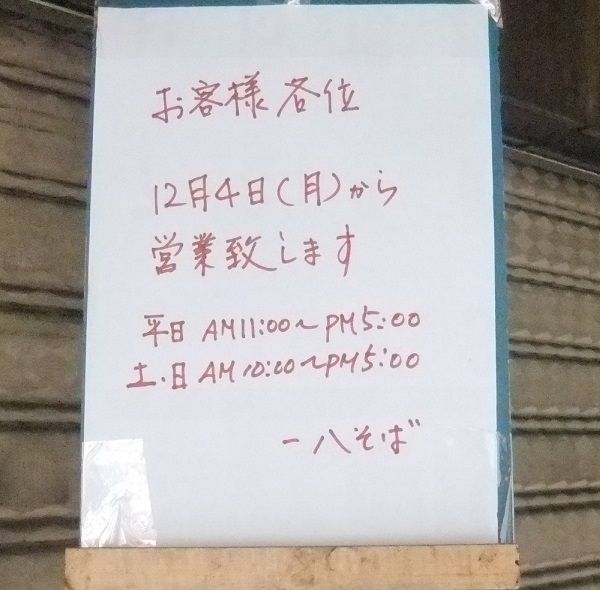 お客様各位
12月4日(月)から
営業致します
平日 AM11:00～PM5:00
土.日 AM10:00～PM5:00
一八そば